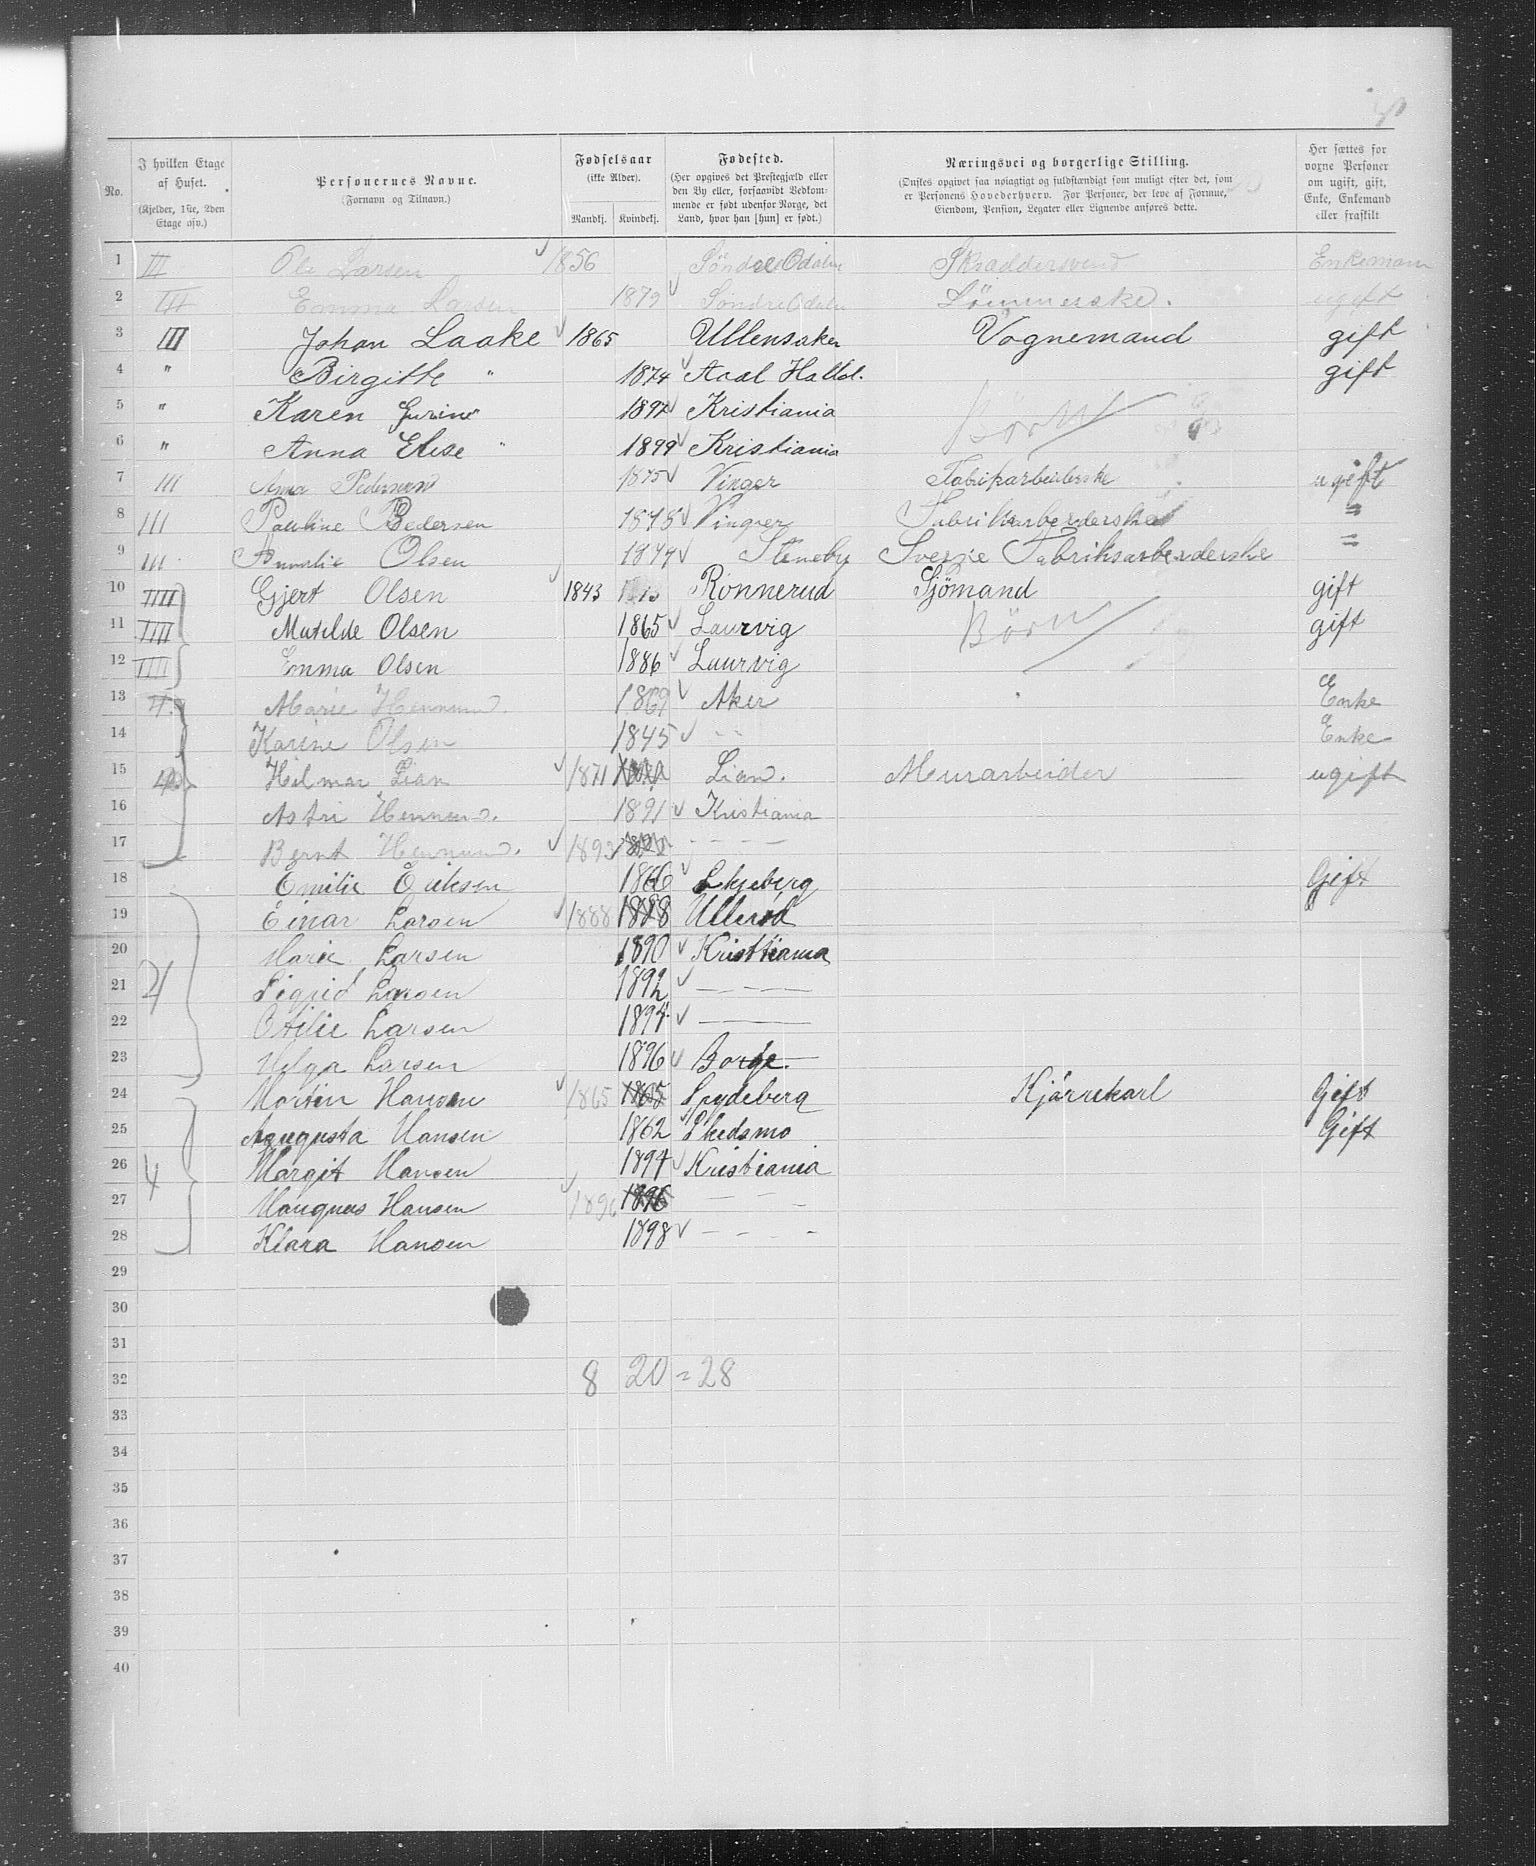 No. | I hvilken Etage af Huset. (Kjelder, 1ste, 2den Etage osv.) | Personernes Navne. (Fornavn og Tilnavn.) | Fødselsaar (ikke Alder). Mandkj. Kvindekj. | Fødested. (Her opgives det Prestegjæld eller den By eller, forsaavidt Vedkommende er født udenfor Norge, det Land, hvor han [hun] er født.) | Næringsvei og borgerlige Stilling. (Ønskes opgivet saa nøiagtigt og fuldstændigt som muligt efter det, som er Personens Hovederhverv. For Personer, der leve af Formue, Eiendom, Pension, Legater eller Lignende anføres dette. | Her sættes for voxne Personer om ugift, gift, Enke, Enkemand eller fraskilt
1 III Ole Larsen 1856 Söndre Odalen Skraddersvend Enkeman
2 III Emma Larsen 1879 Söndre Odalen Sömmerske. ugift
3 III Johan Laake 1865 Ullensaker Vognemand gift
4 " Birgitte " 1874 Aaal Halld. gift
5 " Karen Gurine 1897 Kristiania Börn
6 " Anna Elise " 1899 Kristiania
7 III Anna Pedersen 1875 Vinger Fabrikarbeiderske ugift
8 III Pauline Pedersen 1845 Vinger Fabrikarbederske "
9 III Olsen 1844 Steneby Sverje Fabriksarbederske "
10 IIII Gjert Olsen 1843 Ronnerud Sjömand gift
11 IIII Matilde Olsen 1865 Laurvig Börn gift
12 IIII Emma Olsen 1886 Laurvig
13 4. Marie Hennum. 1869 Aker Enke
14 Karine Olsen 1845 " " Enke
15 4 Hilmar Lian 1871 Lian. Murarbeider ugift
16 Astri Hennum. 1891 Kristiania
17 Bernt Hennum. 1893 - - - -
18 Emilie Eriksen 1866 Skjeberg Gift
19 Einar Larsen 1888 1888 Ullerød
20 Marie Larsen 1890 Kristtiania
21 2 Sigrid Larsen 1892 - - - -
22 Otilie Larsen 1894 ———
23 Helga Larsen 1896 Borge.
24 Martin Hansen 1865 1865 Spydeberg Kjørrekarl Gift
25 Augusta Hansen 1862 Skedsmo Gift
26 4 Margit Hansen 1894 Kristiania
27 Maugnus Hansen 1896 1896 - - -
28 Klara Hansen 1898 - - - -
29
30
31
32 8 20 = 28
33
34
35
36
37
38
39
40